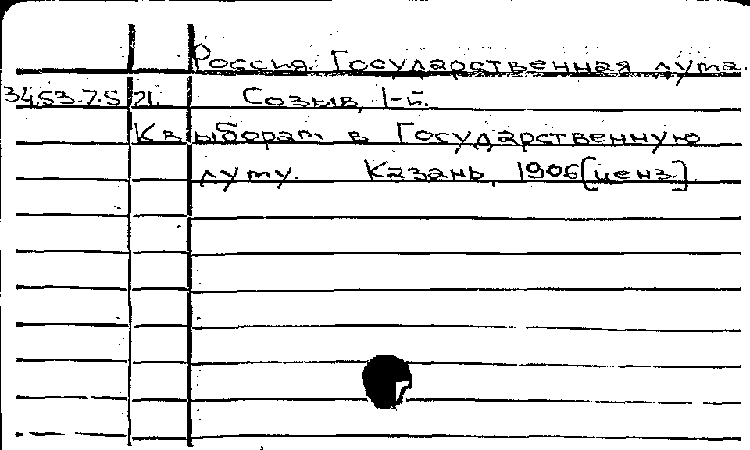 Россия. Государственная дума.
3453.7.5 21. Созыв, 1-й.
К выборам в Государственную
думу. Казань, 1906 [ценз]